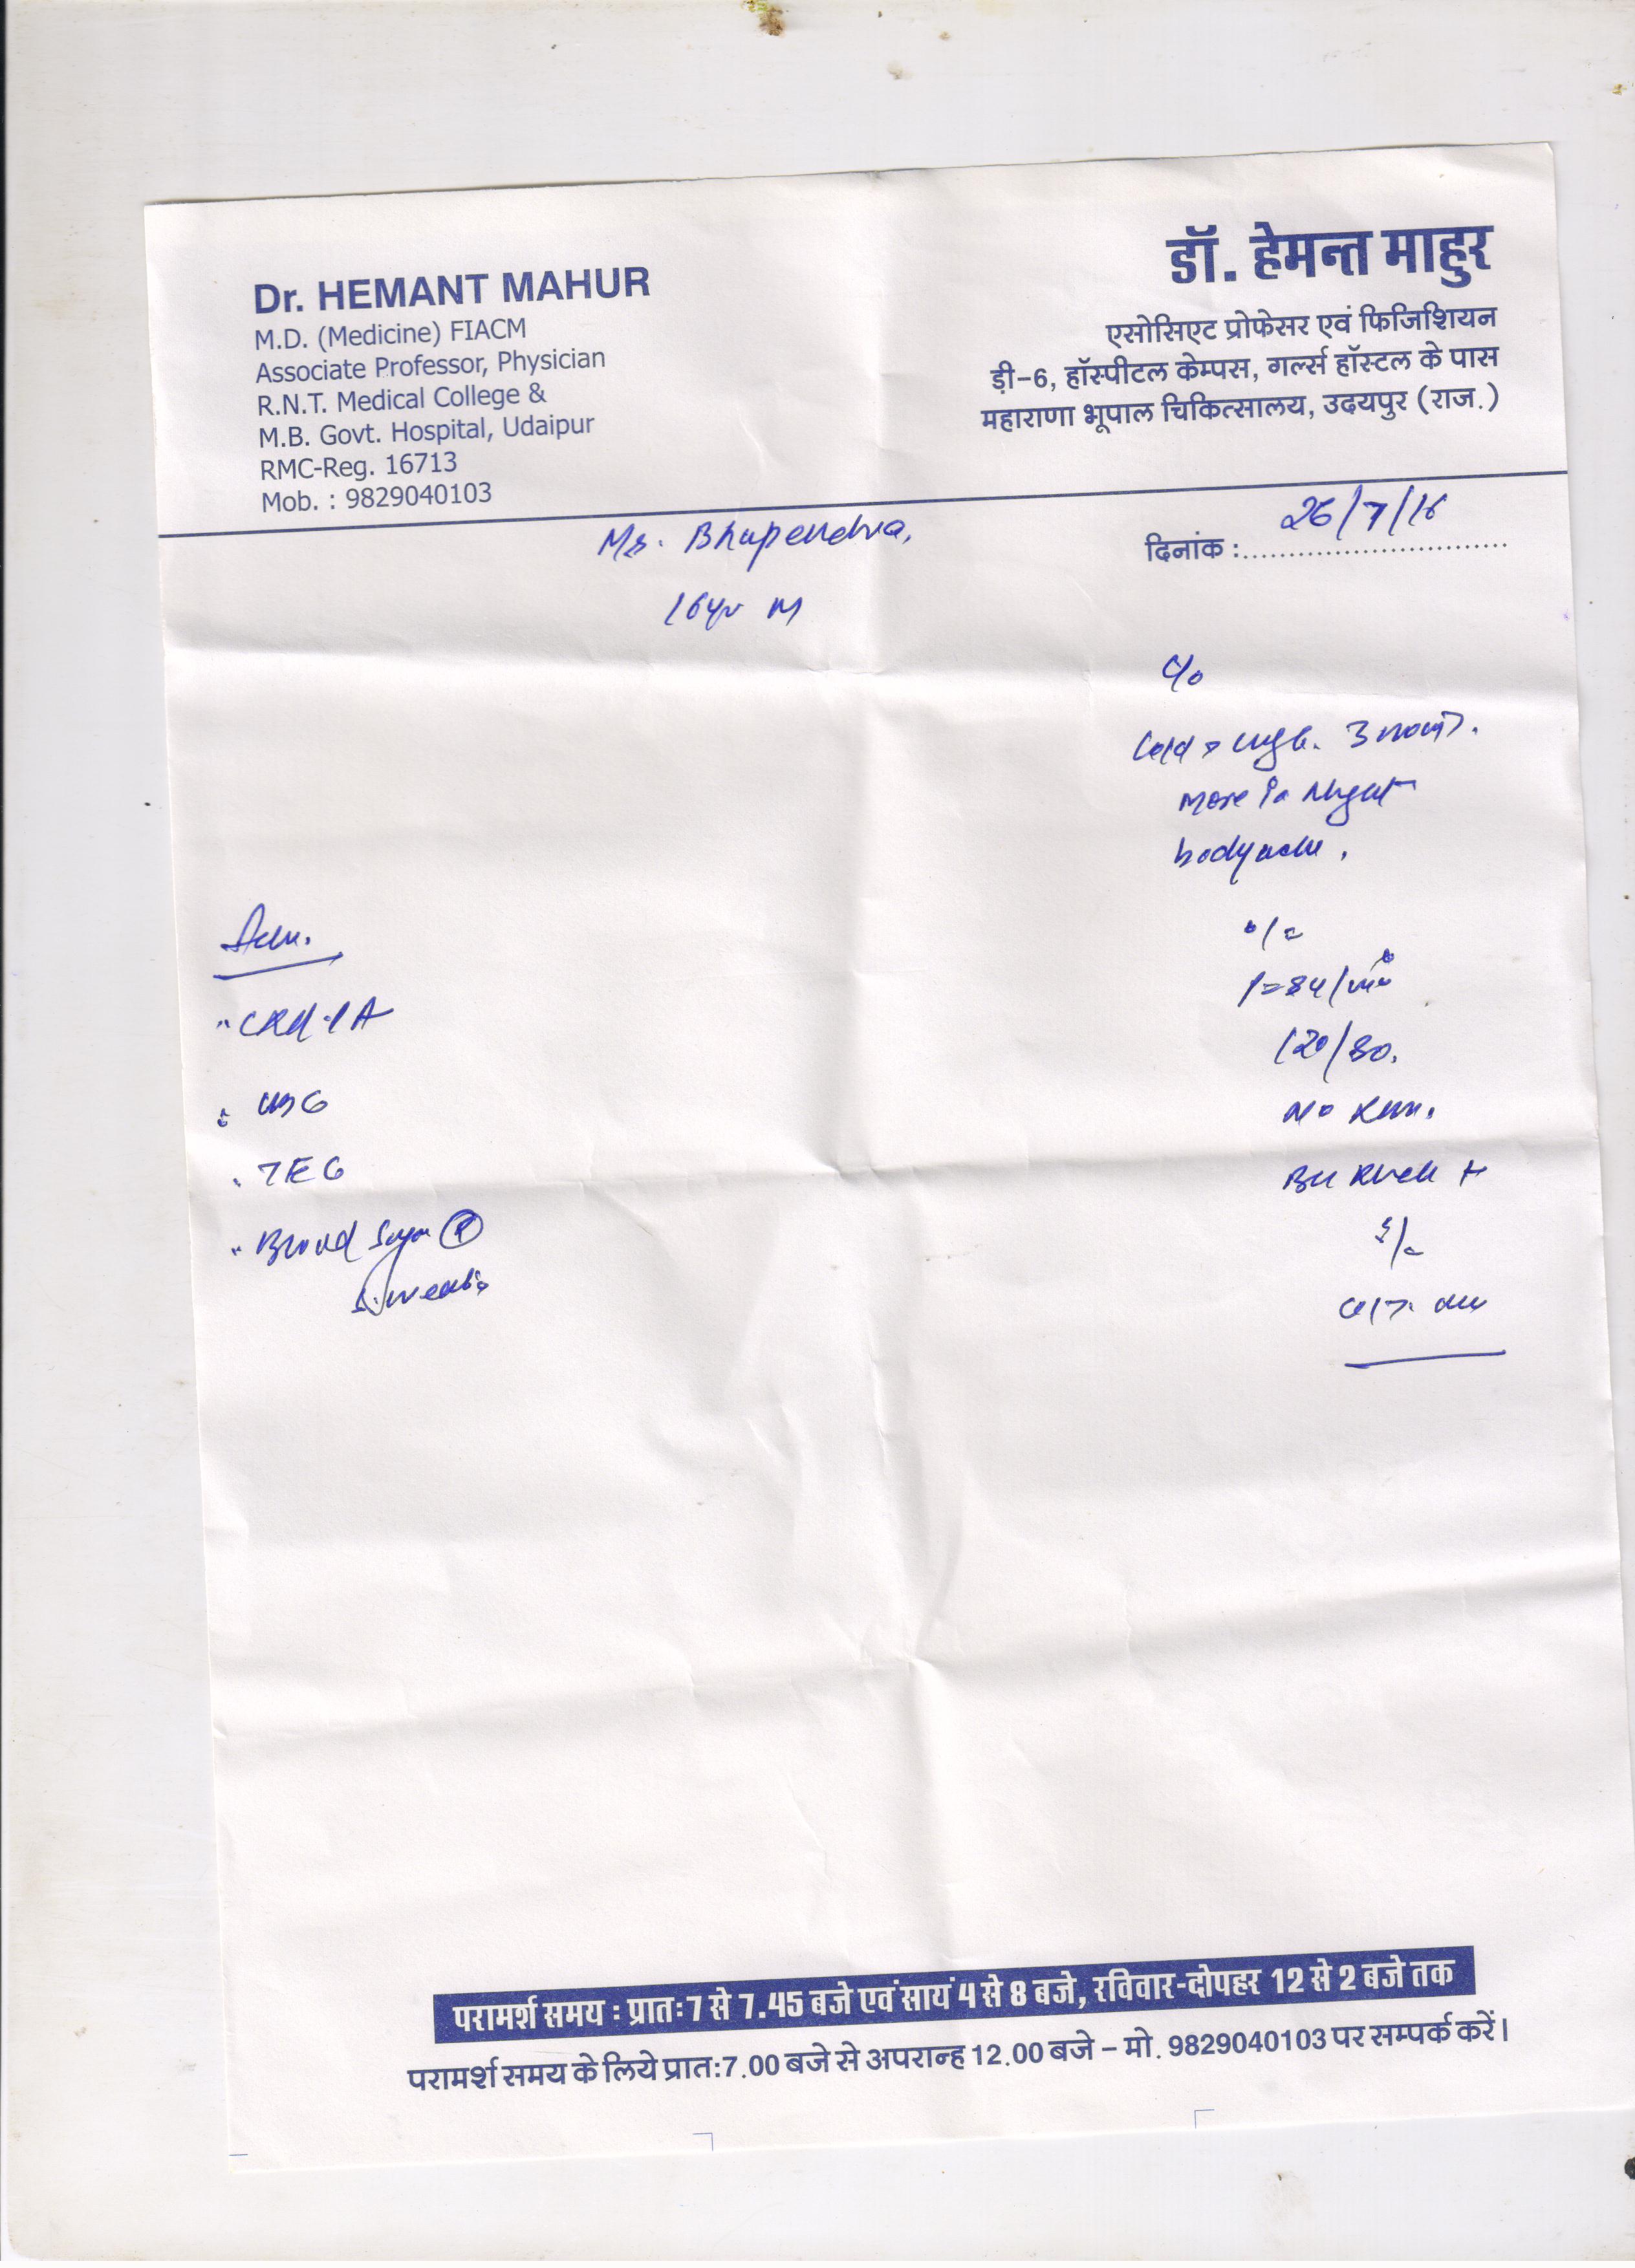 Dr. HEMANT MAHUR
M.D. (Medicine) FIACM
Associate Professor, Physician
R.N.T. Medical College &
M.B. Govt. Hospital, Udaipur
RMC-Reg. 16713
Mob. : 9829040103
डॉ. हेमन्त माहुर
एसोसिएट प्रोफेसर एवं फिजिशियन
ड़ी-6, हॉस्पीटल केम्पस, गर्ल्स हॉस्टल के पास
महाराणा भूपाल चिकित्सालय, उदयपुर (राज.)
दिनांक : 26/7/16
Mr. Bhupendra,
16yr M
c/o
Cold
More in Night
bodyache,
o/e
P=84/min
120/80.
No
B/L
s/e
Adv.
USG
Blood Sugar (R)
परामर्श समय : प्रातः 7 से 7.45 बजे एवं सायं 4 से 8 बजे, रविवार-दोपहर 12 से 2 बजे तक
परामर्श समय के लिये प्रात:7.00 बजे से अपरान्ह 12.00 बजे – मो. 9829040103 पर सम्पर्क करें।